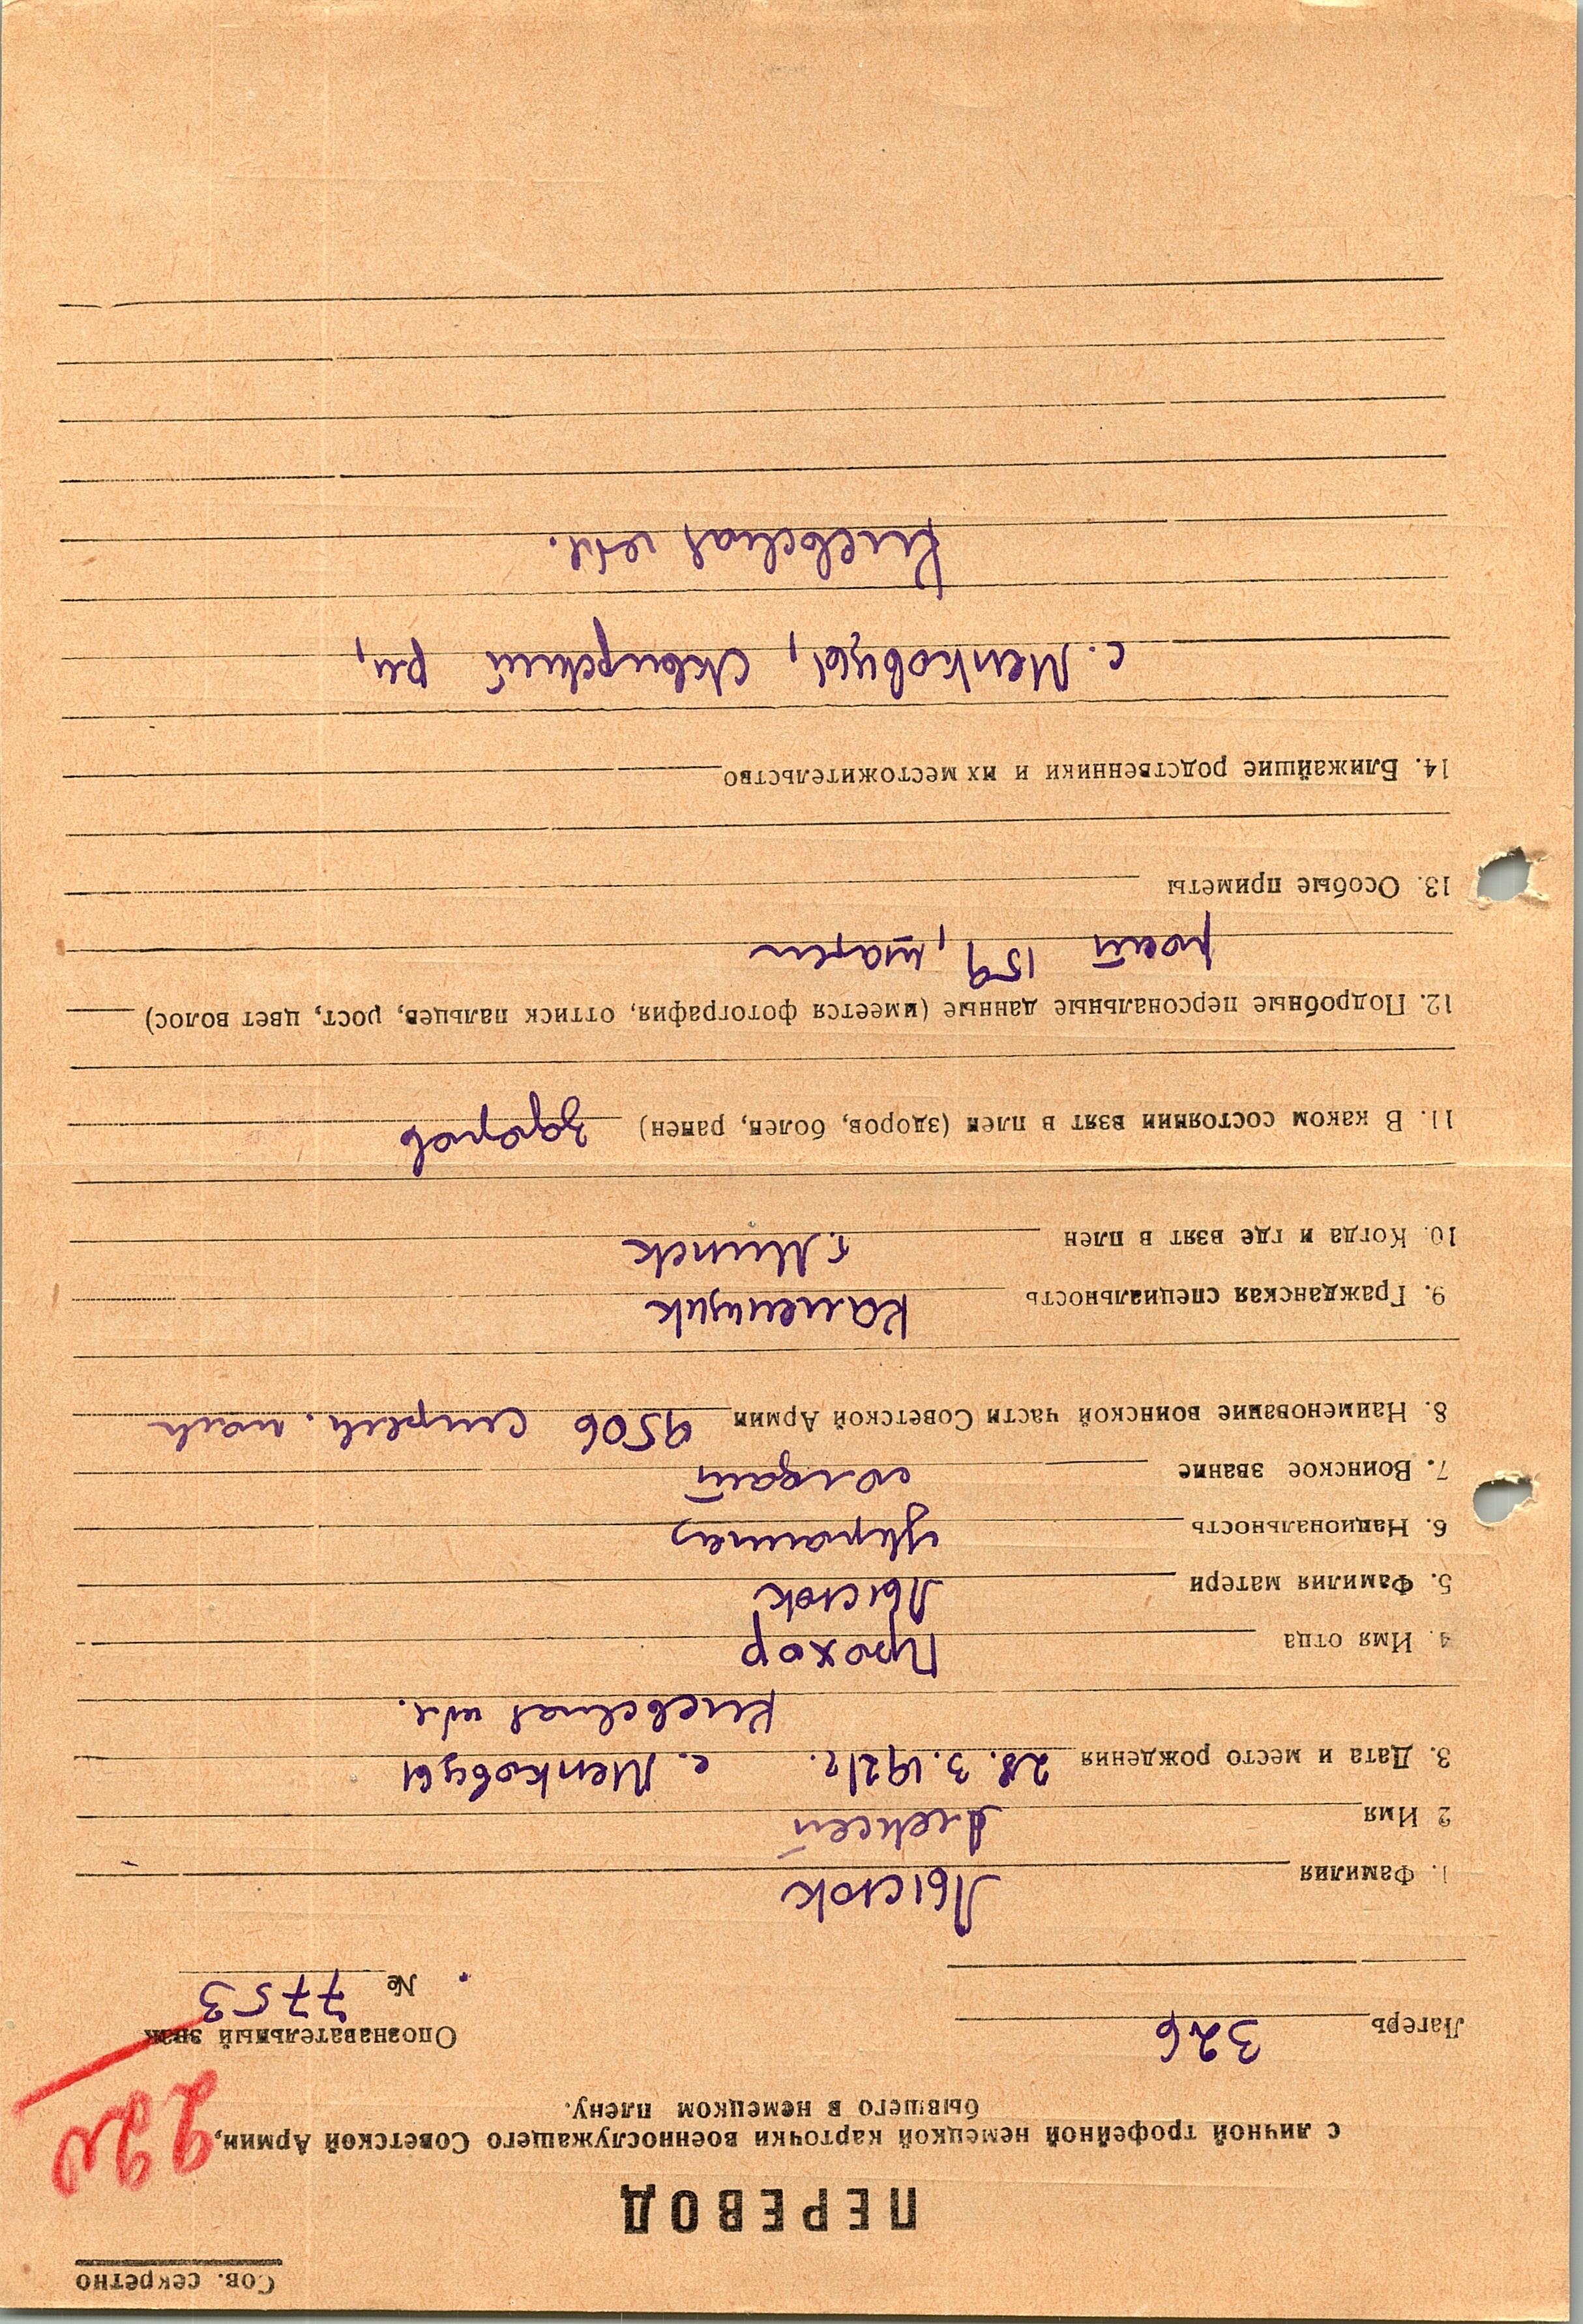 Сов. секретно
ПЕРЕВОД
с личной трофейной немецкой карточки военнослужащего Советской Армии,
бывшего в немецком плену.
Лагерь 326
Опознавательный знак
№ 7753
1. Фамилия Лысюк
2 Имя Алексей
3. Дата и место рождения 28. 3. 1921г. с. Менковцы
Киевская обл.
4. Имя отца Прохор
5. Фамилия матери Лысюк
6. Национальность украинец
7. Воинское звание солдат
8. Наименование воинской части Советской Армии 9506 стрелк. полк
9. Гражданская специальность Каменщик
10. Когда и где взят в плен г. Минск
11. В каком состоянии взят в плен (здоров, болен, ранен) здоров
12. Подробные персональные данные (имеется фотография, оттиск пальцев, рост, цвет волос)
рост 159,
13. Особые приметы
14. Ближайшие родственники и их местожительство
с. Менковцы, Сквирский р-н,
Киевская обл.